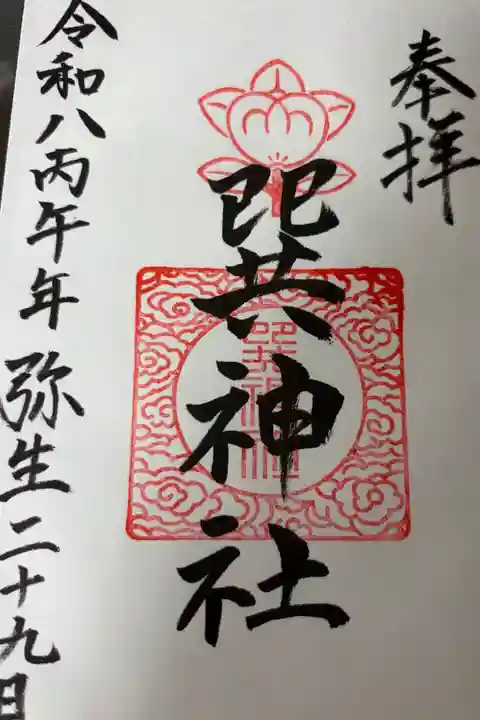 奉拝
巽神社
巽神社
令和八丙午年弥生二十九日